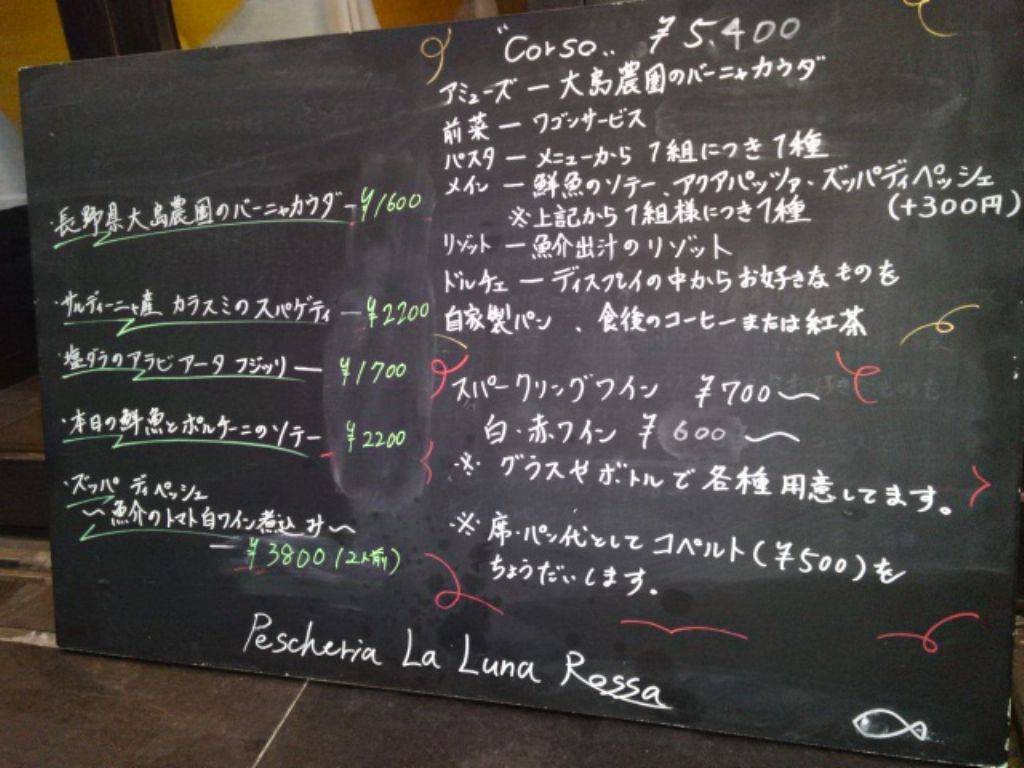 ・長野県大島農園のバーニャカウダ－¥1600
・サルディーニャ産 カラスミのスパゲティ－¥2200
・塩ダラのアラビアータ フジッリ－¥1700
・本日の鮮魚とポルチーニのソテー ¥2200
・ズッパ ディ ペッシェ
～魚介のトマト白ワイン煮込み～
－¥3800(2人前)
"Corso" ¥5,400
アミューズ－大島農園のバーニャカウダ
前菜－ワゴンサービス
パスタ－メニューから1組につき1種
メイン－鮮魚のソテー、アクアパッツァ・ズッパディペッシェ
(+300円)
※上記から1組様につき1種
リゾット－魚介出汁のリゾット
ドルチェ－ディスプレイの中からお好きなものを
自家製パン、食後のコーヒーまたは紅茶
スパークリングワイン ¥700～
白・赤ワイン ¥600～
※グラスやボトルで各種用意してます。
※席・パン代としてコペルト(¥500)を
ちょうだいします。
Pescheria La Luna Rossa